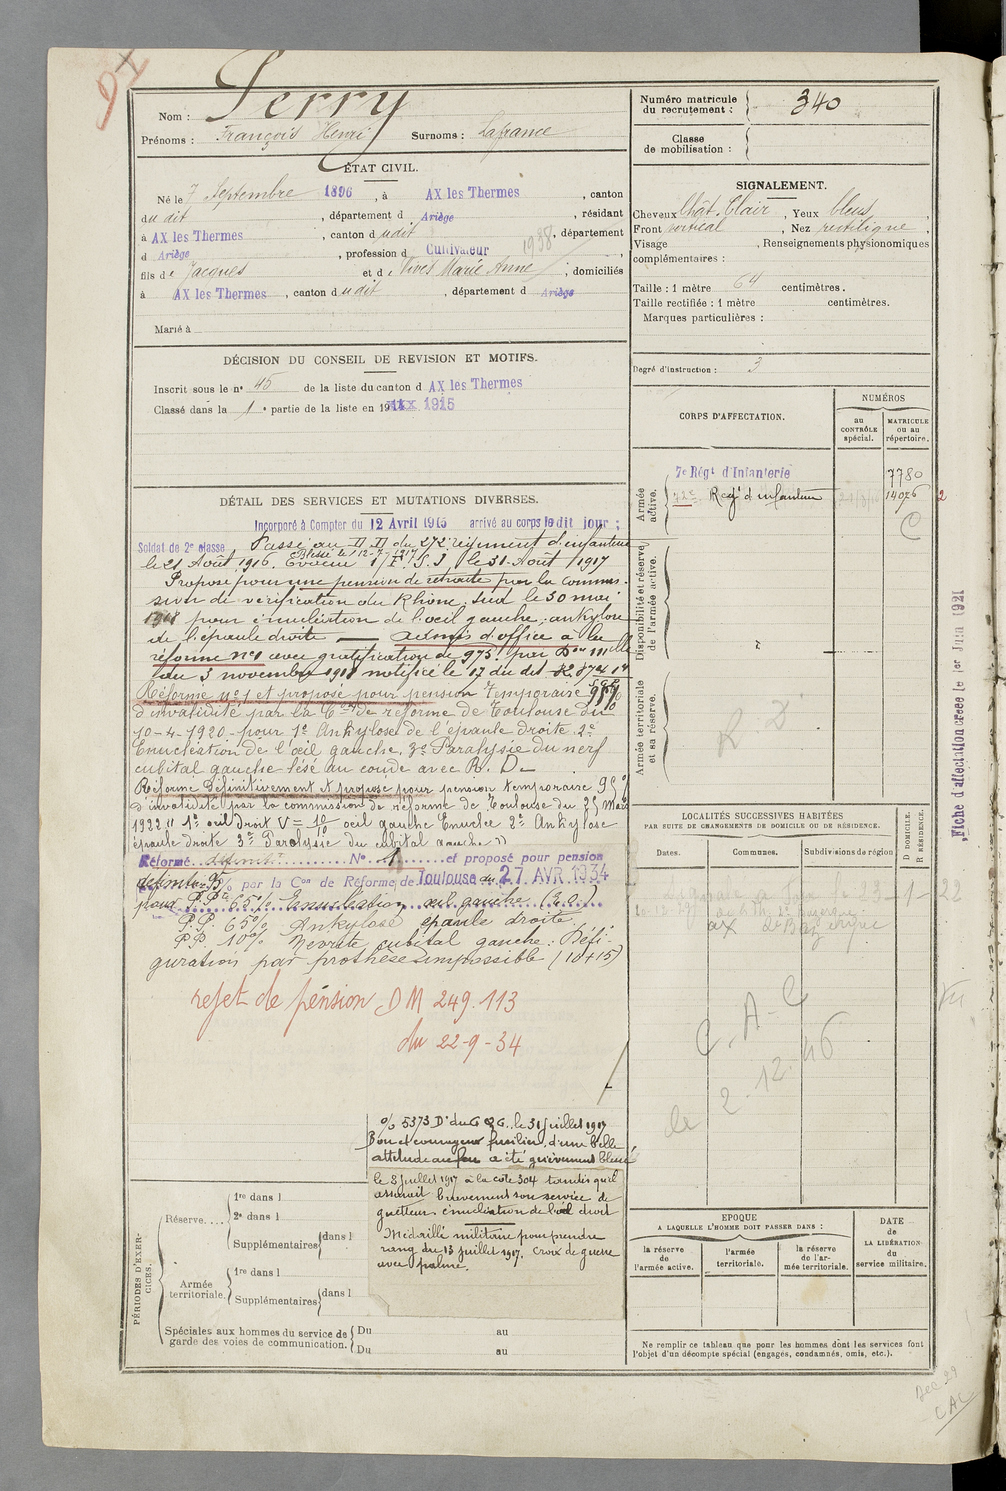 91
Nom : Serry
Prénoms : François Henri Surnoms : Lafrance
ÉTAT CIVIL.
Né le 7 Septembre 1896, à AX les Thermes, canton
dudit, département d Ariège, résidant
à AX les Thermes, canton dudit, département
d Ariège, profession d Cultivateur 1938
fils de Jacques et de Vives Marie Anne ; domiciliés
à AX les Thermes, canton dudit, département d Ariège
Marié à
DÉCISION DU CONSEIL DE REVISION ET MOTIFS.
Inscrit sous le n° 45 de la liste du canton d AX les Thermes
Classé dans la 1e partie de la liste en 1915
DÉTAIL DES SERVICES ET MUTATIONS DIVERSES.
Incorporé à Compter du 12 Avril 1915 arrivé au corps ledit jour ;
Soldat de 2e classe Passé au 272e régiment d'infanterie
le 21 Août 1916. Blessé le 12-7-1917 Evacué le 31 Août 1917
Proposé pour une pension de retraite par la commis-
sion de vérification du Rhône, Sud le 30 mai
1918 pour énucléation de l'œil gauche, ankylose
de l'épaule droite — admis d'office à la
réforme n°1 avec gratification de 975f par Don mlle
du 3 novembre 1918 notifiée le 17 du dit
Réformé n° 1 et proposé pour pension temporaire 95%
d'invalidité par la Con de réforme de Toulouse du
10-4-1920 - pour 1° Ankylose de l'épaule droite 2°
Enucléation de l'œil gauche. 3° Paralysie du nerf
cubital gauche lésé au coude avec R. D-
Réformé Définitivement et proposé pour pension temporaire 95%
d'invalidité par la commission de réforme de Toulouse du 25 Mars
1922 " 1° œil droit V = 10/10 œil gauche Enuclée 2° Ankylose
épaule droite 3° Paralysie du cubital gauche "
Réformé définitif N° 1 et proposé pour pension
définitive 95% par la Con de Réforme de Toulouse du 27 AVR 1934
pour P.P. 65% Enucléation œil gauche
P.P. 65% Ankylose épaule droite,
P.P. 10% Névrite cubital gauche : Défi-
guration par prothèse impossible (10+15)
rejet de pension DM 249.113
du 22-9-34
% 5373 D' du G QG. le 31 juillet 1917
Bon et courageux fusilier, d'une belle
attitude au feu a été grièvement blessé
le 3 juillet 1917 à la côte 304 tandis qu'il
assurait bravement son service de
guetteur. énucléation de l'œil droit
Médaille militaire pour prendre
rang du 13 juillet 1917. Croix de guerre
avec palme.
PÉRIODES D'EXERCICES.
Réserve....
1re dans l
2e dans l
Supplémentaires dans l
Armée territoriale.
1re dans l
Supplémentaires dans l
Spéciales aux hommes du service de garde des voies de communication.
Du au
Du au
Numéro matricule du recrutement : 340
Classe de mobilisation :
SIGNALEMENT.
Cheveux Chât. Clair, Yeux bleus,
Front vertical, Nez rectiligne,
Visage , Renseignements physionomiques
complémentaires :
Taille : 1 mètre 64 centimètres.
Taille rectifiée : 1 mètre centimètres.
Marques particulières :
Degré d'instruction : 3
CORPS D'AFFECTATION.
NUMÉROS
au CONTRÔLE spécial.
MATRICULE ou au répertoire.
Armée active.
7e Régt d'Infanterie 7780
272e Regt d'infanterie 14076
2
C
Disponibilité et réserve de l'armée active.
Armée territoriale et sa réserve.
R. D.
LOCALITÉS SUCCESSIVES HABITÉES
PAR SUITE DE CHANGEMENTS DE DOMICILE OU DE RÉSIDENCE.
Dates.
Communes.
Subdivisions de région
D DOMICILE.
R RÉSIDENCE.
C. A. C
de 2-12-46
EPOQUE
A LAQUELLE L'HOMME DOIT PASSER DANS :
la réserve de l'armée active.
l'armée territoriale.
la réserve de l'armée territoriale.
DATE de LA LIBÉRATION du service militaire.
Ne remplir ce tableau que pour les hommes dont les services font
l'objet d'un décompte spécial (engagés, condamnés, omis, etc.).
Fiche d'affectation créée le 1er Juin 1921
CAC